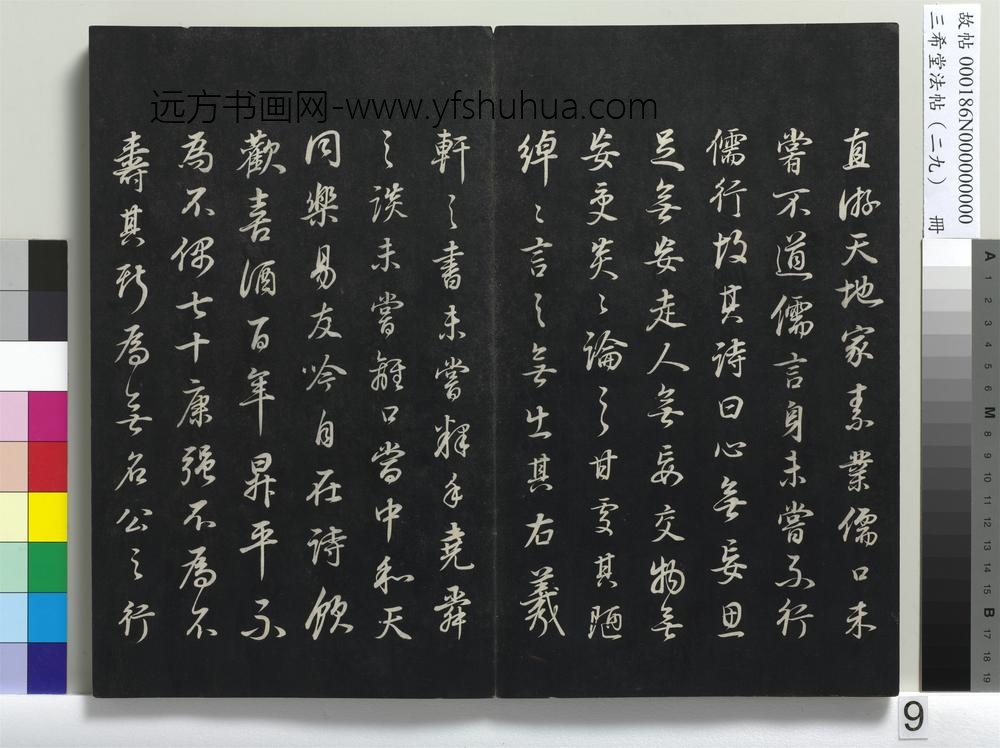 故帖 000186N000000000
三希堂法帖（二九） 冊
远方书画网-www.yfshuhua.com
直游天地家素業儒口未
嘗不道儒言身未嘗不行
儒行故其詩曰心無妄思
足無妄走人無妄交物無
妄受炎炎論之甘處其陋
綽綽言之無出其右羲
軒之書未嘗釋手堯舜
之談未嘗離口當中和天
同樂易友吟自在詩飲
歡喜酒百年昇平不
為不偶七十康强不為不
壽其斯為無名公之行
A 1 2 3 4 5 6 M 8 9 10 11 12 13 14 15 B 17 18 19
9